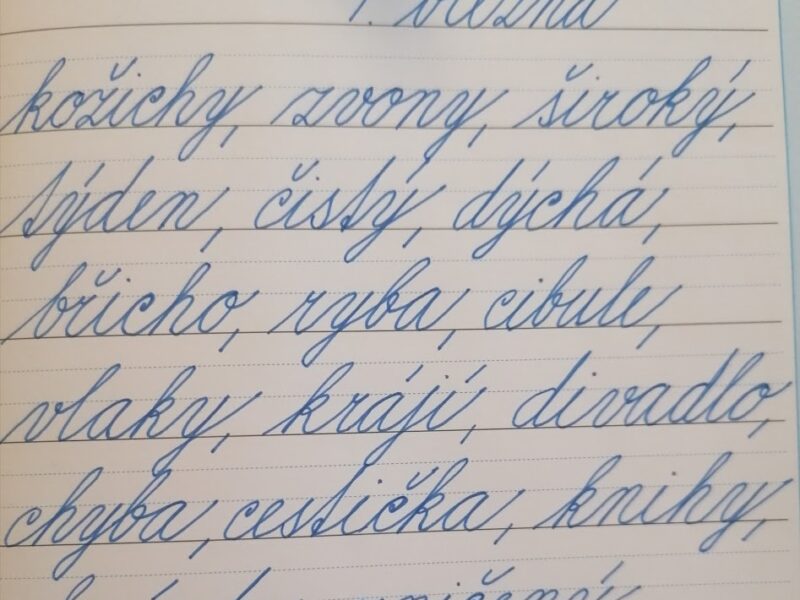 1. března
kožichy, zvony, široký,
týden, čistý, dýchá,
břicho, ryba, cibule,
vlaky, krájí, divadlo,
chyba, cestička, knihy,